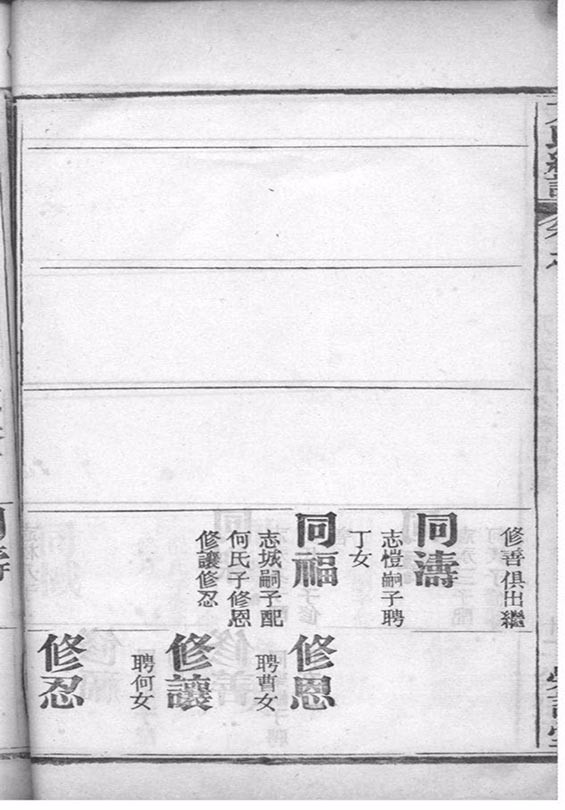 修善俱出繼
同濤
志愷嗣子聘
丁女
同福
志城嗣子配
何氏子修恩
修讓修忍
修恩
聘曹女
修讓
聘何女
修忍